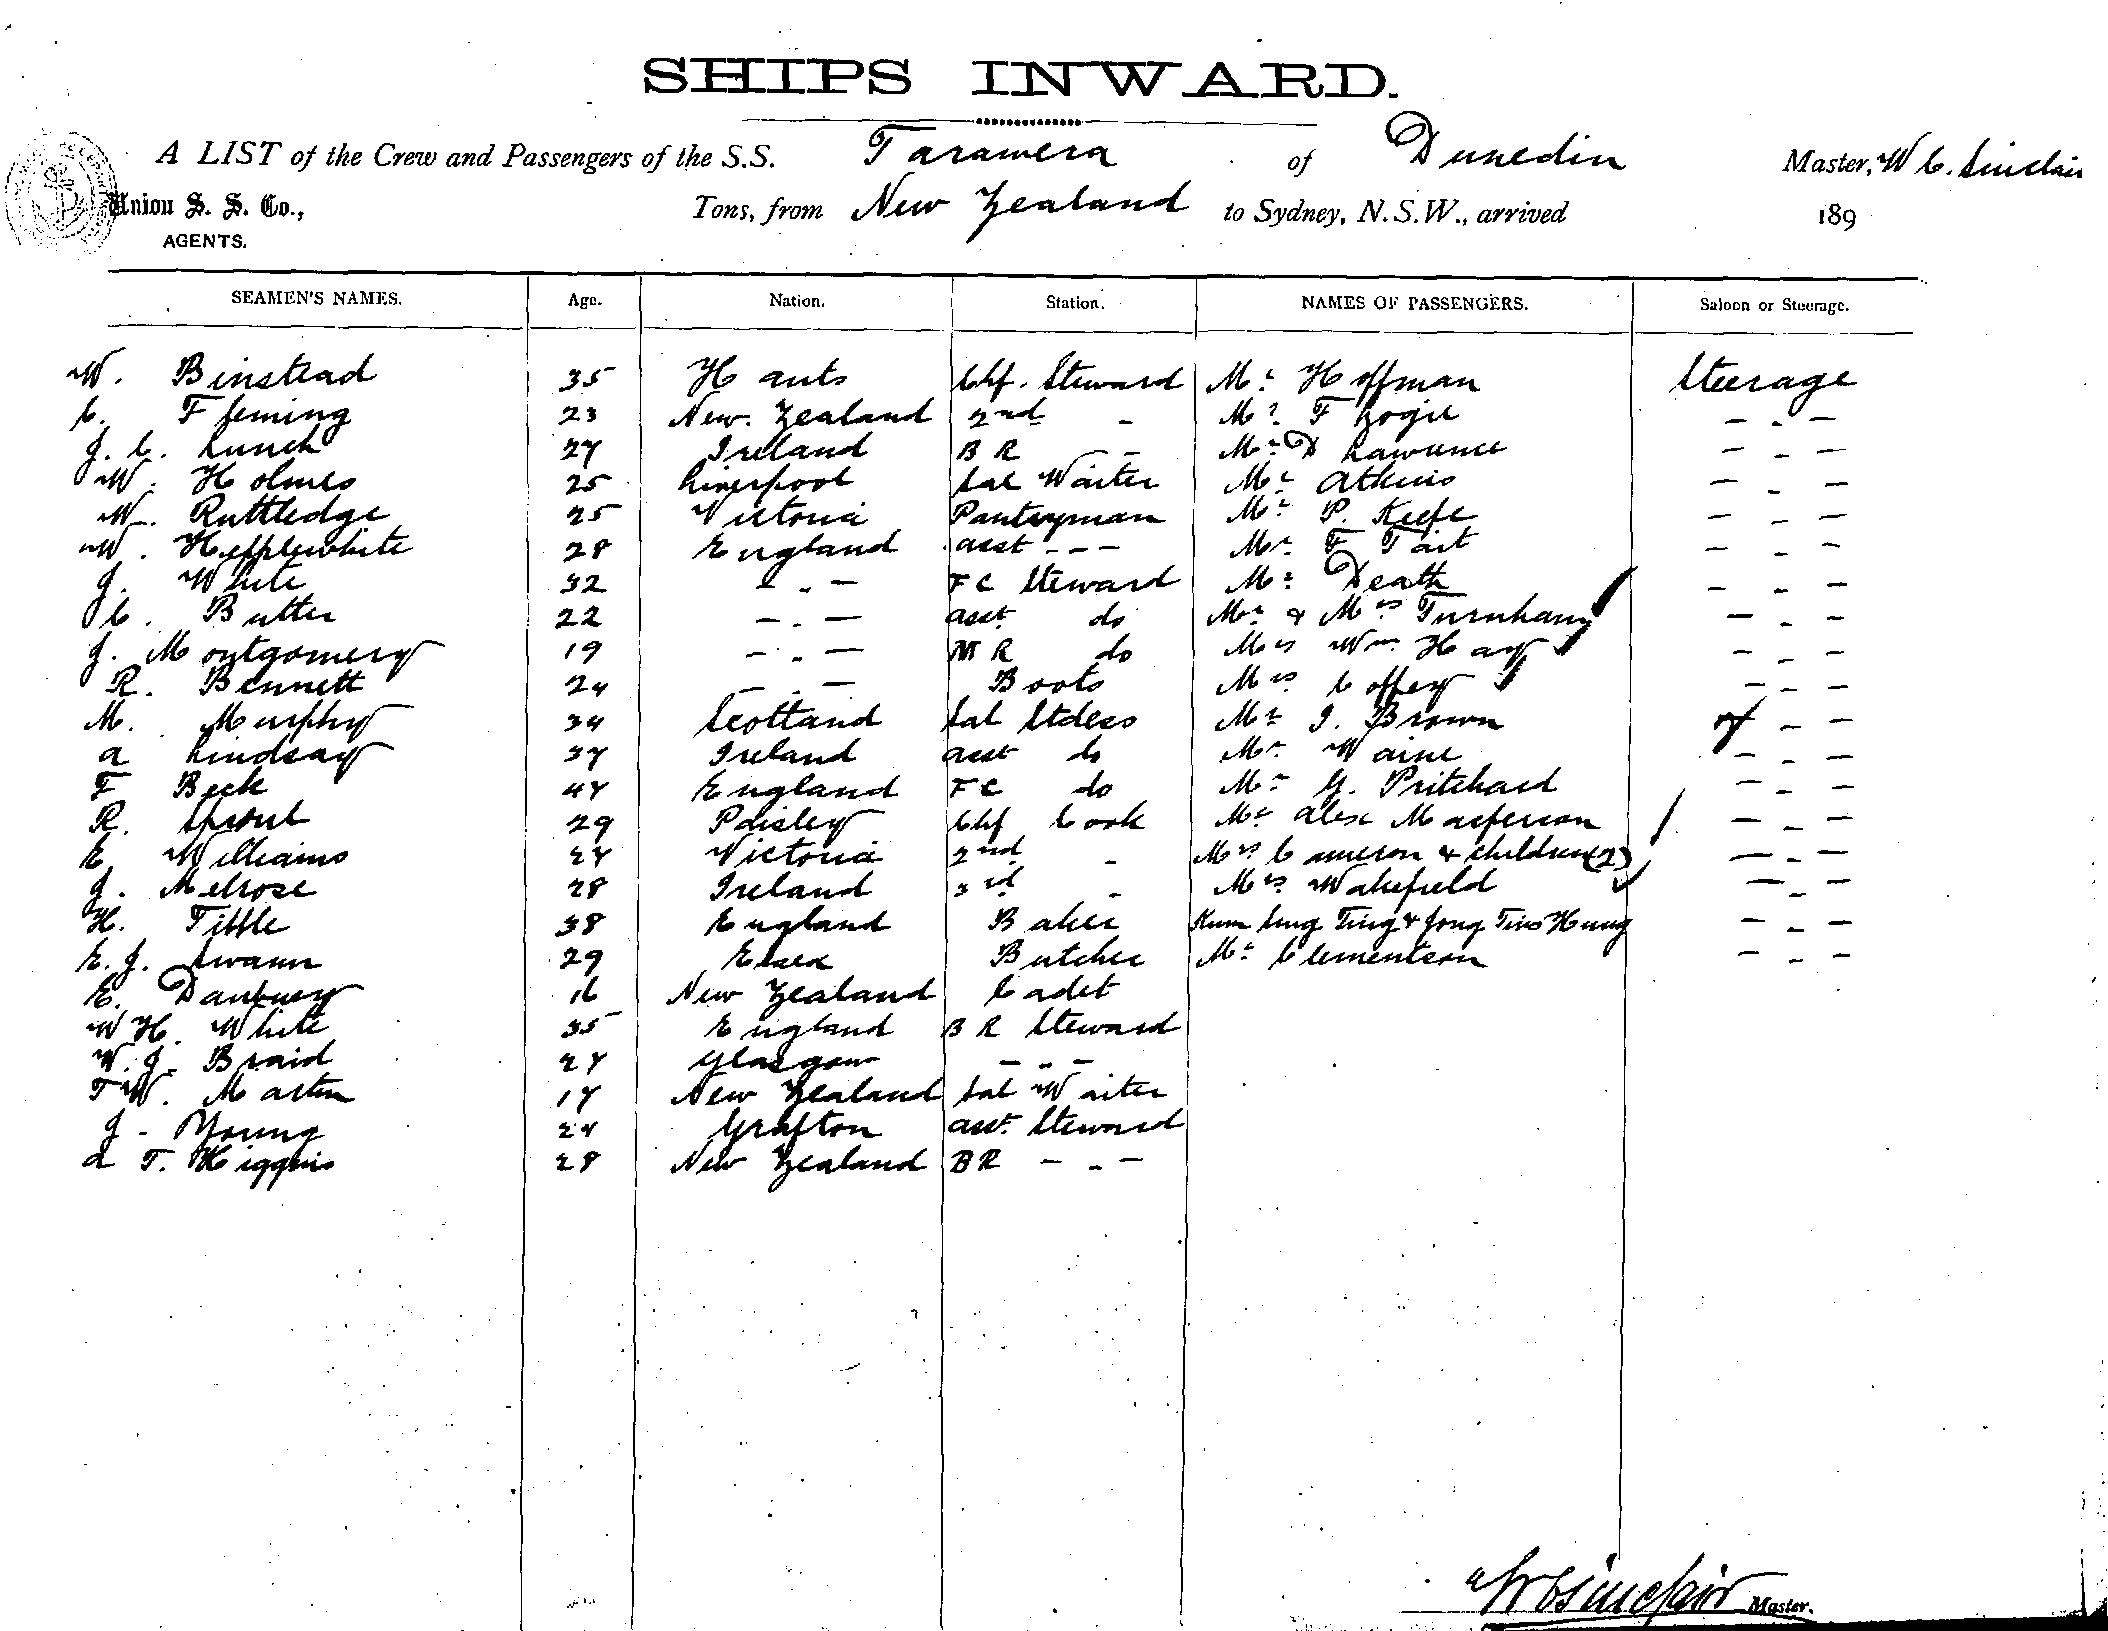 SHIPS INWARD.
A LIST of the Crew and Passengers of the S.S. Tarawera of Dunedin Master, W C. Sinclair
Union S. S. Co., Tons, from New Zealand to Sydney, N.S.W., arrived 189
AGENTS.
SEAMEN'S NAMES. Age. Nation. Station. NAMES OF PASSENGERS. Saloon or Steerage.
W. Binstead 35 Hants Chf. Steward Mr Hoffman Steerage
C. Fleming 23 New Zealand 2nd - Mr F - . -
J. C. Lynch 27 Ireland B R - - Mr D Lawrence - . -
W. Holmes 25 Liverpool Sal Waiter Mr Atkins - . -
W. Ruttledge 25 Victoria Pantryman Mr P. Keefe - . -
W. Hepplewhite 28 England asst - - - Mr F Tait - . -
J. White 32 - . - F C Steward Mr Death - . -
C. Butter 22 - . - asst do Mr & Mrs Turnham - . -
J. Montgomery 19 - . - M R do Mrs Wm Hay - . -
R. Bennett 24 - . - Boots Mrs Coffey - . -
M. Murphy 34 Scotland Sal Stdess Mr J. Brown - -
A Lindsay 37 Ireland asst do Mr Waine - . -
F Beck 47 England F C do Mr G. Pritchard - . -
R. Sproul 29 Paisley Chf Cook Mr Alex Macferson - . -
E Williams 27 Victoria 2nd - Mrs Cameron & children (2) - . -
J. Melrose 28 Ireland 3rd - Mrs Wakefield - . -
H. Tibble 38 England Baker Kum Sing Ting & Jong Tins Hung - . -
E. J. Swann 29 Essex Butcher Mr Clementson - . -
E. Danbury 16 New Zealand Cadet
W H. White 35 England B R Steward
W. J. Braid 27 Glasgow - . -
F W. Martin 17 New Zealand Sal Waiter
J - Young 24 Grafton asst. Steward
A T. Higgins 28 New Zealand B R - . -
W C Sinclair Master.